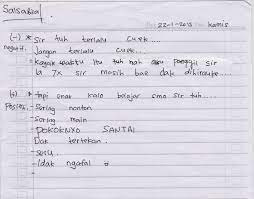 Salsabila
22-1-2015 kamis
(-) * Sir tuh terlalu cuek...
negatif. Jangan terlalu cuek...
* Kayak waktu itu tuh nah aku panggil sir
la 7x sir masih bae dak dihirauke...
(+) * tapi enak kalo belajar sma sir tuh....
Positif. - Sering nonton
- Sering main
- POKOKNYO SANTAI
Dak tertekan.
- seru..
- Idak ngafal